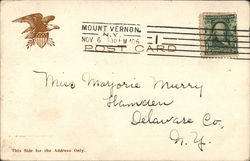 MOUNT VERNON,
N.Y.
NOV 6 30 PM '06
1
POST CARD
Miss Marjorie Murry
Hamden
Delaware Co,
N. Y.
This Side for the Address Only.